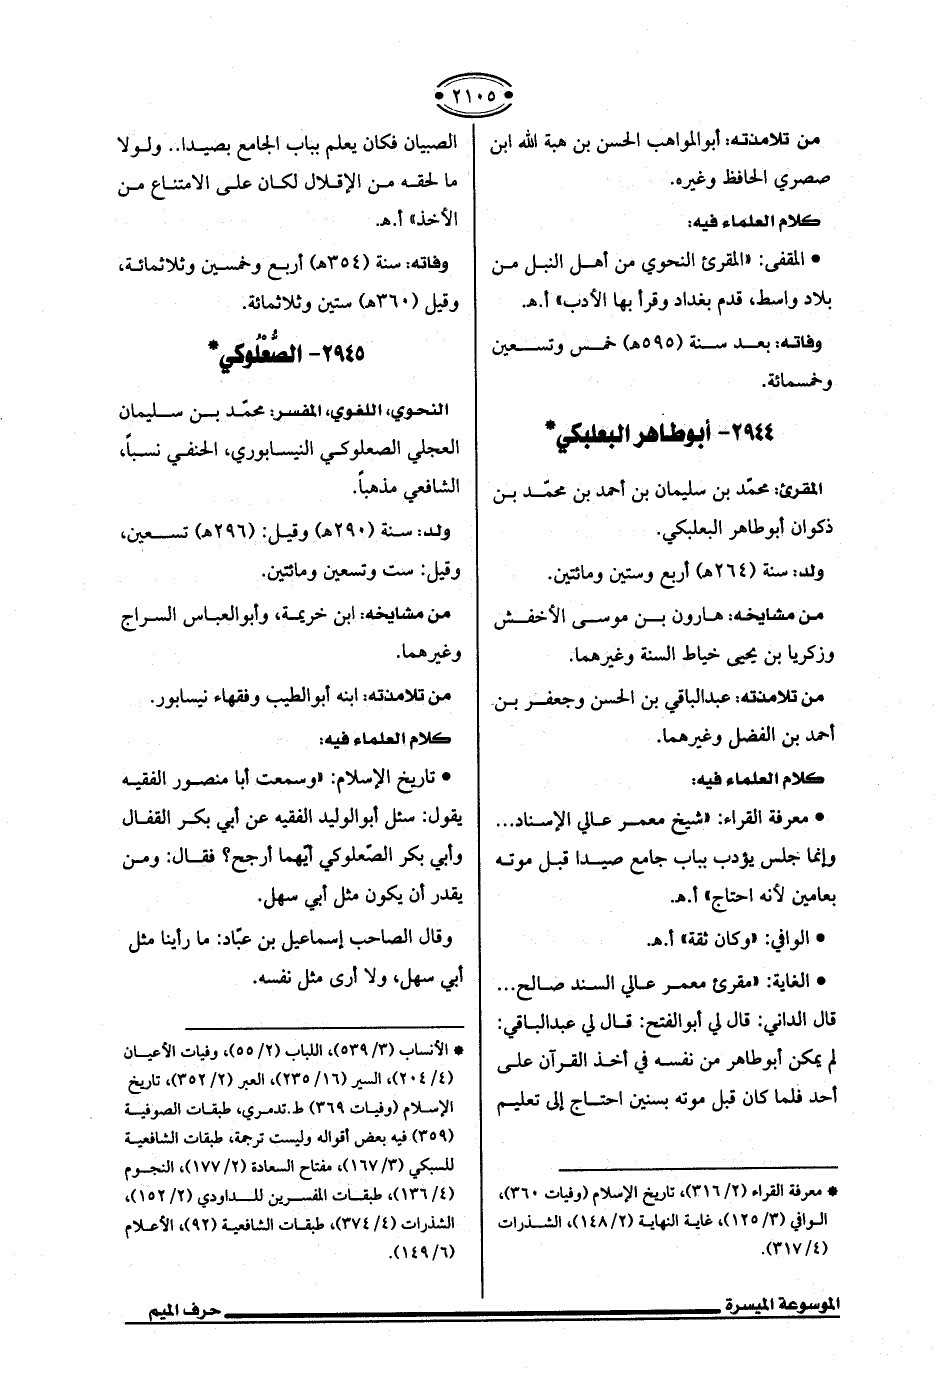 ٢١٠٥
من تلامذته: أبو المواهب الحسن بن هبة الله ابن
صصري الحافظ وغيره.
كلام العلماء فيه:
• المقفى: «المقرئ النحوي من أهل النيل من
بلاد واسط، قدم بغداد وقرأ بها الأدب» أ.هـ.
وفاته: بعد سنة (٥٩٥هـ) خمس وتسعين
وخمسمائة.
٢٩٤٤- أبو طاهر البعلبكي*
المقرئ: محمّد بن سليمان بن أحمد بن محمّد بن
ذكوان أبو طاهر البعلبكي.
ولد: سنة (٢٦٤هـ) أربع وستين ومائتين.
من مشايخه: هارون بن موسى الأخفش
وزكريا بن يحيى خياط السنة وغيرهما.
من تلامذته: عبدالباقي بن الحسن وجعفر بن
أحمد بن الفضل وغيرهما.
كلام العلماء فيه:
• معرفة القراء: «شيخ معمر عالي الإسناد...
وإنما جلس يؤدب بباب جامع صيدا قبل موته
بعامين لأنه احتاج» أ.هـ.
• الوافي: «وكان ثقة» أ.هـ.
• الغاية: «مقرئ معمر عالي السند صالح...
قال الداني: قال لي أبو الفتح: قال لي عبدالباقي:
لم يمكن أبو طاهر من نفسه في أخذ القرآن على
أحد فلما كان قبل موته بسنين احتاج إلى تعليم
* معرفة القراء (٣١٦/٢)، تاريخ الإسلام (وفيات ٣٦٠)،
الوافي (١٢٥/٣)، غاية النهاية (١٤٨/٢)، الشذرات
(٣١٧/٤).
الصبيان فكان يعلم بباب الجامع بصيدا.. ولولا
ما لحقه من الإقلال لكان على الامتناع من
الأخذ» أ.هـ.
وفاته: سنة (٣٥٤هـ) أربع وخمسين وثلاثمائة،
وقيل (٣٦٠هـ) ستين وثلاثمائة.
٢٩٤٥- الصُّعْلُوكي*
النحوي، اللغوي، المفسر: محمّد بن سليمان
العجلي الصعلوكي النيسابوري، الحنفي نسباً،
الشافعي مذهباً.
ولد: سنة (٢٩٠هـ) وقيل: (٢٩٦هـ) تسعين،
وقيل: ست وتسعين ومائتين.
من مشايخه: ابن خريمة، وأبو العباس السراج
وغيرهما.
من تلامذته: ابنه أبو الطيب وفقهاء نيسابور.
كلام العلماء فيه:
• تاريخ الإسلام: «وسمعت أبا منصور الفقيه
يقول: سئل أبو الوليد الفقيه عن أبي بكر القفال
وأبي بكر الصّعلوكي أيّهما أرجح؟ فقال: ومن
يقدر أن يكون مثل أبي سهل.
وقال الصاحب إسماعيل بن عبّاد: ما رأينا مثل
أبي سهل، ولا أرى مثل نفسه.
* الأنساب (٥٣٩/٣)، اللباب (٥٥/٢)، وفيات الأعيان
(٢٠٤/٤)، السير (٢٣٥/١٦)، العبر (٣٥٢/٢)، تاريخ
الإسلام (وفيات ٣٦٩) ط.تدمري، طبقات الصوفية
(٣٥٩) فيه بعض أقواله وليست ترجمة، طبقات الشافعية
للسبكي (١٦٧/٣)، مفتاح السعادة (١٧٧/٢)، النجوم
(١٣٦/٤)، طبقات المفسرين للداودي (١٥٢/٢)،
الشذرات (٣٧٤/٤)، طبقات الشافعية (٩٢)، الأعلام
(١٤٩/٦).
الموسوعة الميسرة
حرف الميم